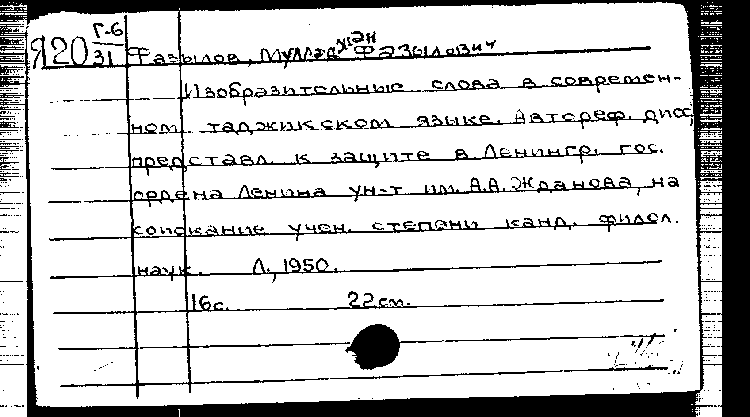 Я20 Г-6
31
Фазылов, Муллоджан Фазылович
Изобразительные слова в современ-
ном таджикском языке. Автореф. дисс,
представл. к защите в Ленингр. гос.
ордена Ленина ун-т им. А.А. Жданова, на
соискание учен. степени канд. филол.
наук. Л., 1950.
16с. 22см.